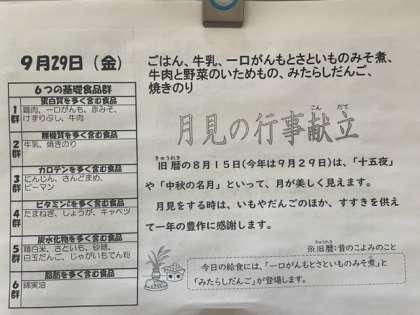 9月29日（金）
ごはん、牛乳、一口がんもとさといものみそ煮、
牛肉と野菜のいためもの、みたらしだんご、
焼きのり
6つの基礎食品群
1群
蛋白質を多く含む食品
鶏肉、一口がんも、赤みそ、
けずりぶし、牛肉
2群
無機質を多く含む食品
牛乳、焼きのり
3群
カロテンを多く含む食品
にんじん、さんどまめ、
ピーマン
4群
ビタミンCを多く含む食品
たまねぎ、しょうが、キャベツ
5群
炭水化物を多く含む食品
精白米、さといも、砂糖、
白玉だんご、じゃがいもでん粉
6群
脂肪を多く含む食品
綿実油
こん だて
月見の行事献立
きゅうれき
旧暦の８月１５日(今年は９月２９日)は、「十五夜」
や「中秋の名月」といって、月が美しく見えます。
月見をする時は、いもやだんごのほか、すすきを供え
て一年の豊作に感謝します。
きゅうれき
※旧暦：昔のこよみのこと
今日の給食には、「一口がんもとさといものみそ煮」と
「みたらしだんご」が登場します。